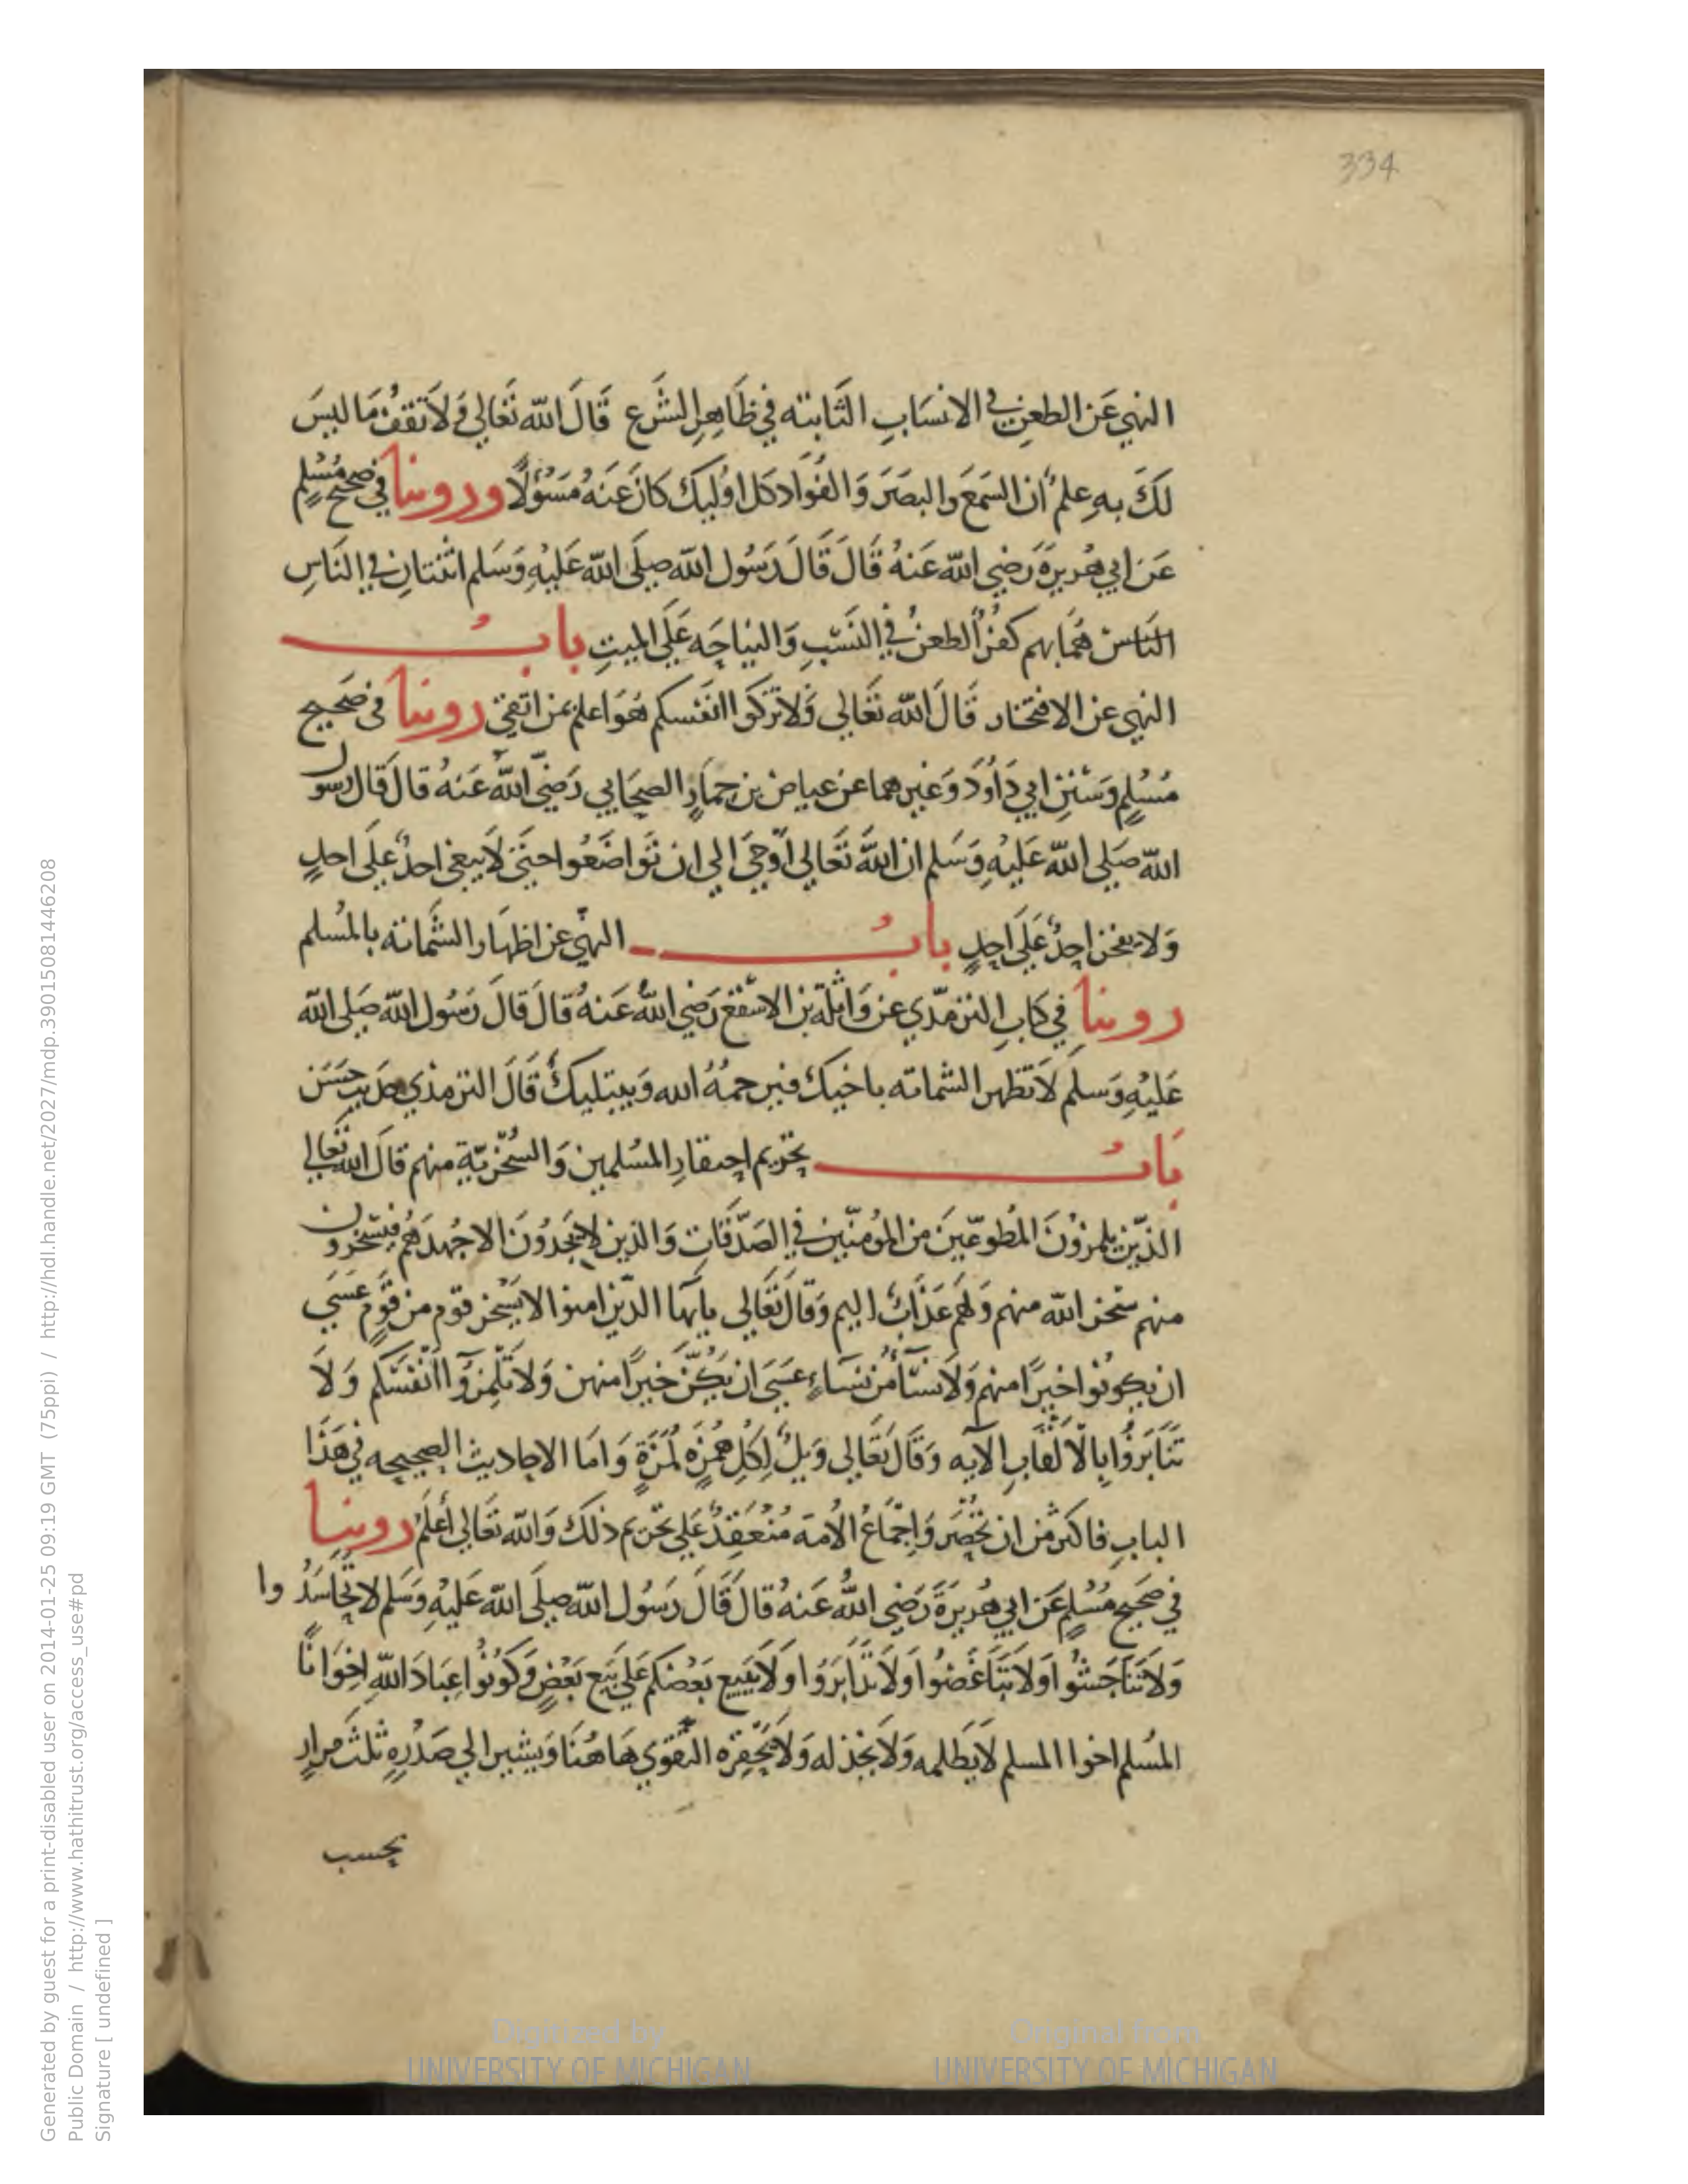 334
النهي عَن الطعن في الانسَابِ الثَّابته في ظَاهِرِ الشَّرع قَالَ اللّه تَعَالي وَلَا تَقفُ مَا ليسَ
لَكَ بهِ علمٌ ان السَمعَ والبصَرَ وَالفُوَاد كل اوُليكَ كانَ عَنهُ مَسؤلًا وروينا في صحيح مُسْلِم
عَن ابي هُريرَةَ رَضِي اللّه عَنهُ قَالَ قَالَ رَسُول اللّه صلَى اللّه عَليْهِ وَسَلم اثنتانِ في النَاسِ
النَاس هُمَا بهم كفرٌ الطعنُ في النَسَبِ وَالنيَاحَه عَلَى الميتِ بابُ
النهي عن الافتخار قَالَ اللّه تَعَالي وَلَا تزكوا انفسكم هُوَ اعلم بمن اتقى روينا في صَحيح
مُسْلِم وَسُنَنِ ابي دَاوُدَ وَغيرهما عن عياض بن حِمَارٍ الصحَابي رَضِيَ اللّه عَنهُ قالَ قَال رسول
اللّه صَلي اللّه عَليْهِ وَسَلم ان اللّهَ تَعَالي اَوْحَي الي ان تَوَاضَعُوا حتَى لَا يبغي احدٌ عَلَى احدٍ
وَلا يفخر احدٌ عَلَى احدٍ بابُ النهي عن اظهَار الشَّمَاته بالمُسلم
روينا في كتابِ الترمذي عن وَاثلةَ بن الاسْقع رَضي اللّهُ عَنهُ قالَ قالَ رَسُول اللّه صَلى اللّه
عَليْهِ وَسلم لَا تظهر الشماته باخيكَ فيرحمُهُ الله وَيبتليكَ قَالَ الترمذي حديث حَسَن
بَابُ تحريم احتقارِ المسُلمين وَالسُّخريّةِ منهم قالَ اللّه تعَالي
الذّين يلمزوُنَ المُطوعّينَ من المُومنين في الصَدَقات وَالذين لا يجَدُونَ الا جُهدَهُم فيسخرون
منهم سَخر اللّه منهم وَلهم عَذَابٌ اليم وَقالَ تَعَالي يايهَا الذين امنوا لا يَسْخر قوم من قَومٍ عَسَي
ان يكونُوا خيرًا منهم وَلَا نسَاءٌ من نسَاءٍ عَسَى ان يَكُنّ خَيرًا منهن وَلا تَلْمِزُوآ اَنْفسَكم وَلَا
تَنَابَزوُا بِالاَلقَابِ الآيه وَقَال تَعَالي وَيلٌ لِكُلِ هُمَزَه لُمَزَةٍ وَامَا الاحاديث الصحيحه في هَذَا
البابِ فاكثر من ان تحُصَر وَاِجْمَاعُ الاُمة مُنْعَقِدٌ عَلي تحريم ذلكَ وَاللّه تَعَالي أعْلَمُ روينا
في صَحيح مُسْلِم عَن ابي هُريرَةَ رَضِي اللّهُ عَنهُ قالَ قَالَ رَسُول اللّه صلَى اللّه عَليْهِ وَسَلم لا تَحَاسَدُوا
وَلَا تَنَاجَشُوا وَلَا تبَاغَضُوا وَلَا تَدَابَرَوُا وَلا يَبيع بَعْضكم عَلي بَيع بَعْضٍ وَكونُوا عِبَادَ اللّهِ اخِوَانًا
المسُلم اخوا المسلم لَا يَظلمه وَلَا يخذله وَلَا يَحْقِرُه التَقوي هَاهُنَا وَيشير الي صَدْرِهِ ثَلثَ مِرارٍ
بحسب
Generated by guest for a print-disabled user on 2014-01-25 09:19 GMT (75ppi) / http://hdl.handle.net/2027/mdp.39015081446208
Public Domain / http://www.hathitrust.org/access_use#pd
Signature [ undefined ]
Digitized by
UNIVERSITY OF MICHIGAN
Original from
UNIVERSITY OF MICHIGAN